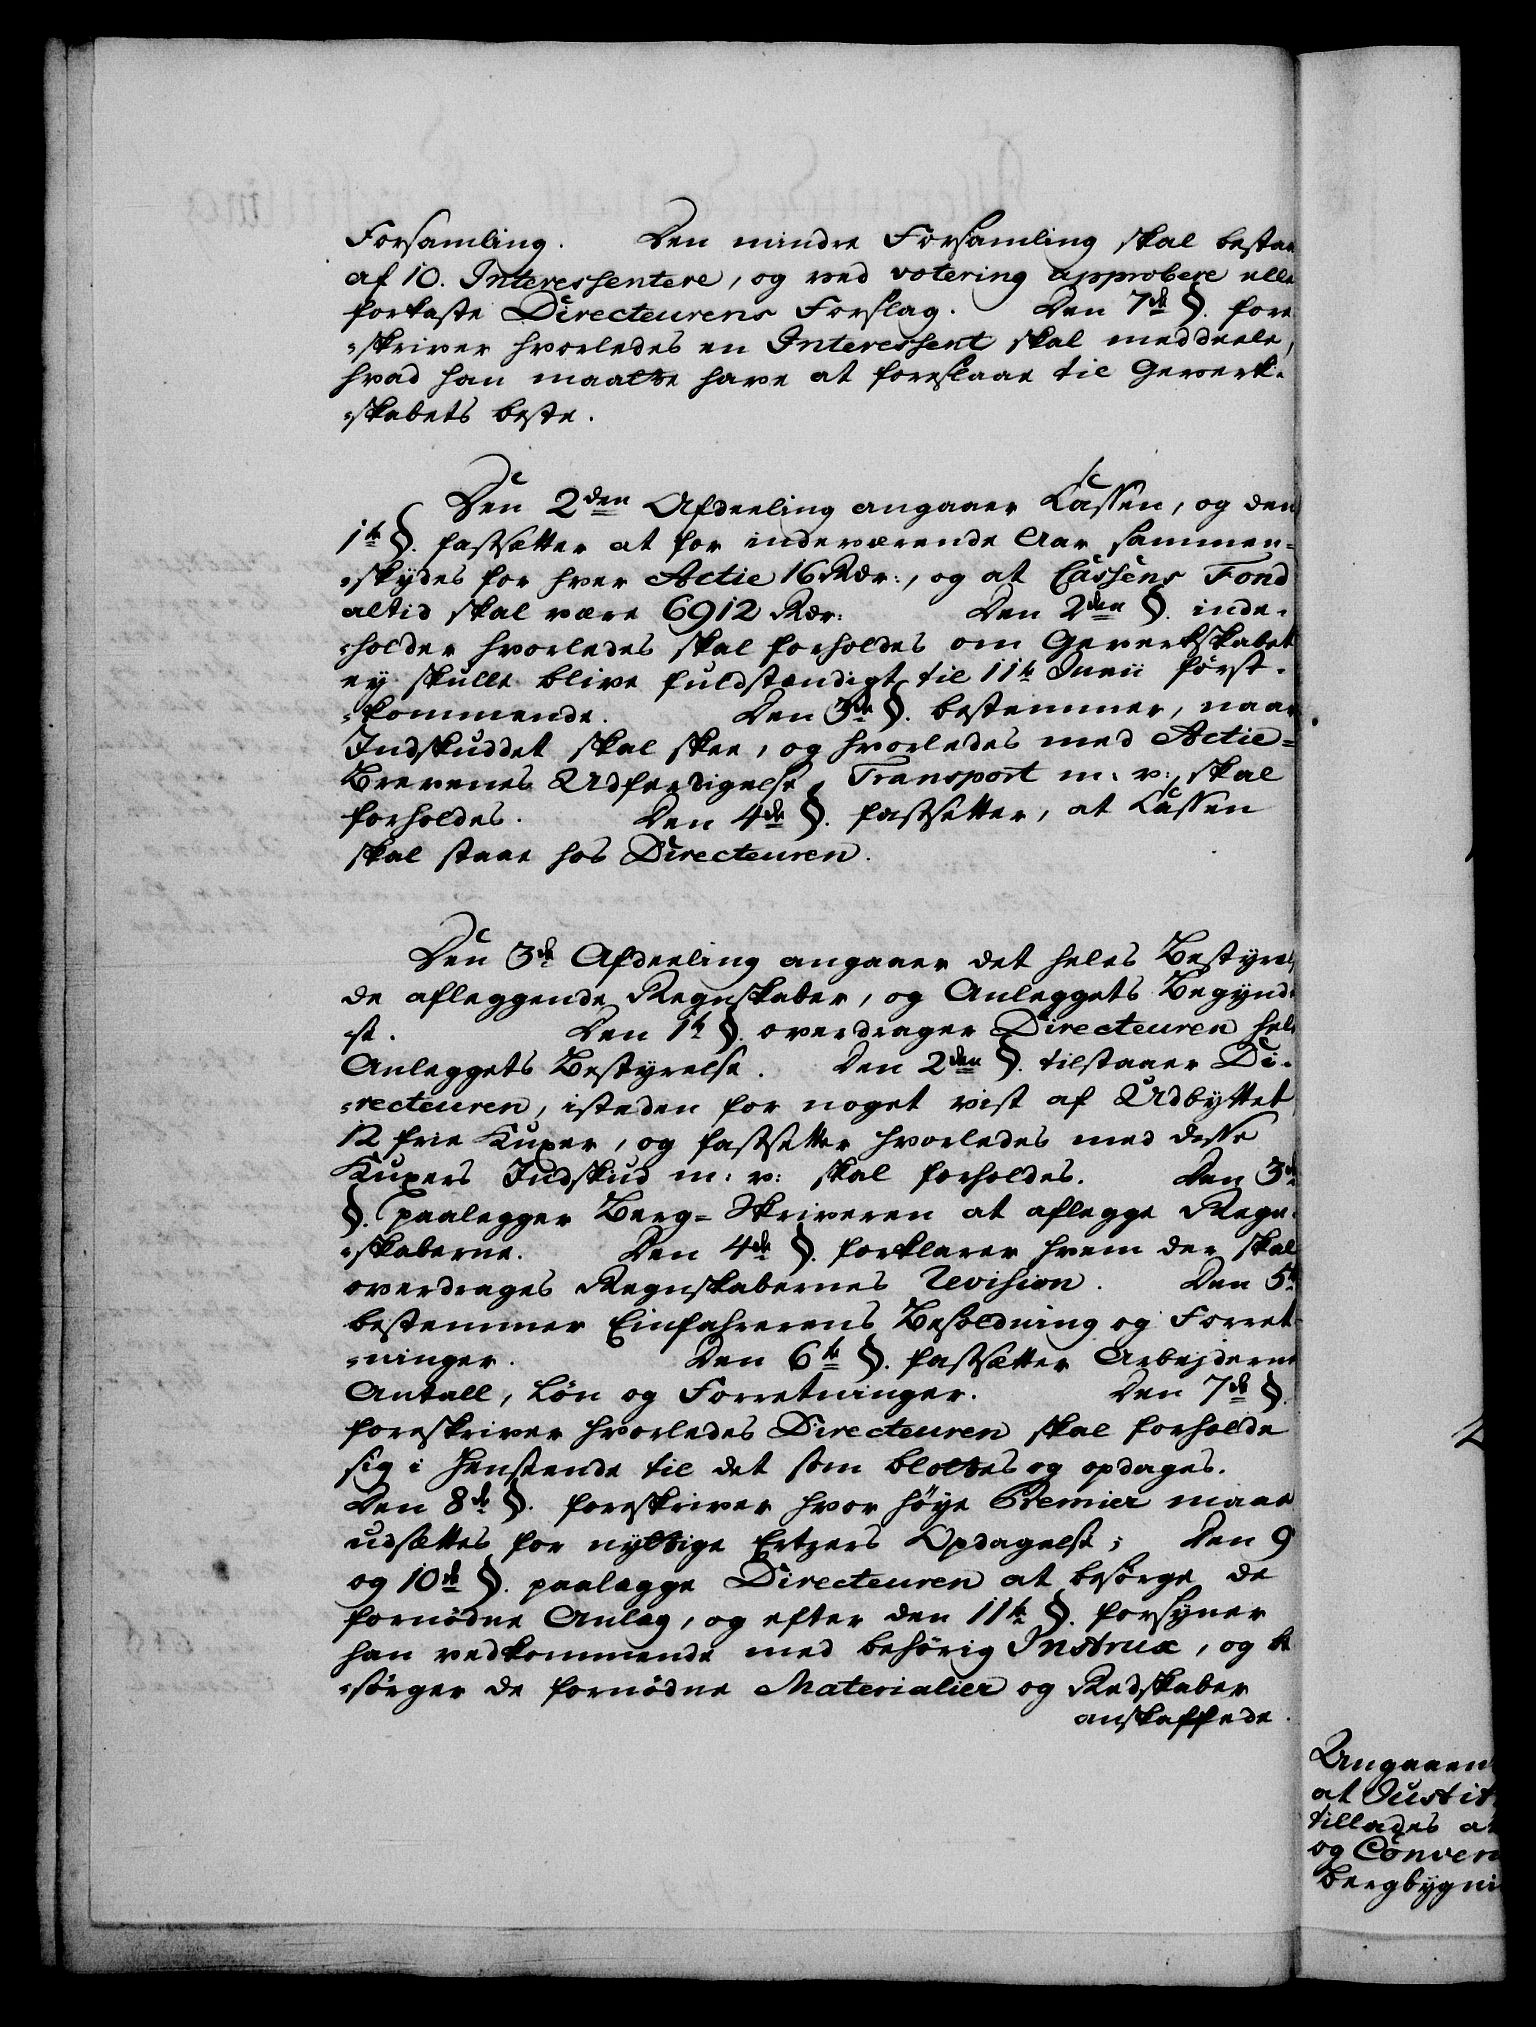 Forsamling. Den mindre Forsamling skal bestaae
af 10. Interessentere, og ved votering approbere elle
forkaste Directeurens Forslag. Den 7de §. fore
=skriver hvorledes en Interessent skal meddeele,
hvad han maatte have at foreslaae til Gewerk-
=skabets beste.
Den 2den Afdeeling angaaer Cassen, og den
1te §. fastsætter at for indeværende Aar sammen=
=skydes for hver Actie 16 Rdr:, og at Cassens Fond
altid skal være 6912 Rdr: Den 2den §. inde-
=holder hvorledes skal forholdes om Gewerkskabet
ey skulle blive fuldstændigt til 11te Junii først-
=kommende. Den 3de §. bestemmer, naar
Indskuddet skal skee, og hvorledes med Actie=
Brevenes Udferdigelse, Transport m: v:, skal
forholdes. Den 4de §. fastsetter, at Cassen
skal staae hos Directeuren.
Den 3de Afdeeling angaaer det heles Bestyrels
de aflæggende Regnskaber, og Anleggets Begynd-
st. Den 1te §. overdrager Directeuren hele
Anleggets Bestyrelse. Den 2den §. tilstaaer Di-
=recteuren, isteden for noget vist af Udbyttet
12 frie Kuxer, og fastsetter hvorledes med disse
Kuxers Indskud m: v: skal forholdes. Den 3de
§. paalegger Berg=Skriveren at aflegge Regn-
=skaberne. Den 4de §. forklarer hvem der skal
overdrages Regnskabernes Revision. Den 5te
bestemmer Einfahrerens Besoldning og Forret-
=ninger. Den 6te §. fastsætter Arbejderne
Antall, Løn og Forretninger. Den 7de §.
foreskriver hvorledes Directeuren skal forholde
sig i Henseende til det som blottes og opdages.
Den 8de §. foreskriver hvor høye Premier maae
udsættes for nyttige Ertzers Opdagelse; Den 9
og 10de §. paalegge Directeuren at besørge de
fornødne Anleg, og efter den 11te §. forsyner
han vedkommende med behørig Instrux, og be
=sørger de fornødne Materialier og Redskaber
anskaffede.
Angaaen
at Justit
tillades at
og Conver
Bergbygni